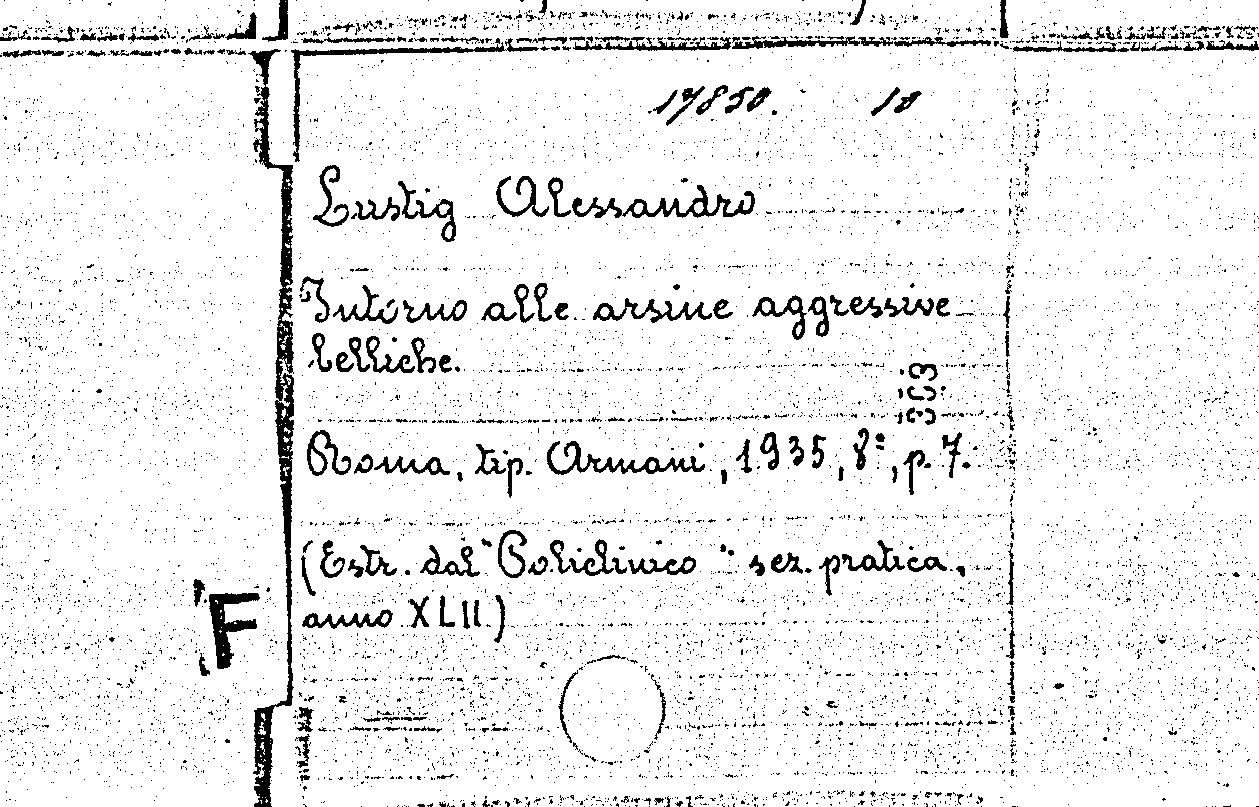 17850. 10
Lustig Alessandro
Intorno alle arsine aggressive
belliche.
Roma, tip. Armani, 1935, 8°, p. 7.
(Estr. dal "Policlinico" sez. pratica,
anno XLII)
F